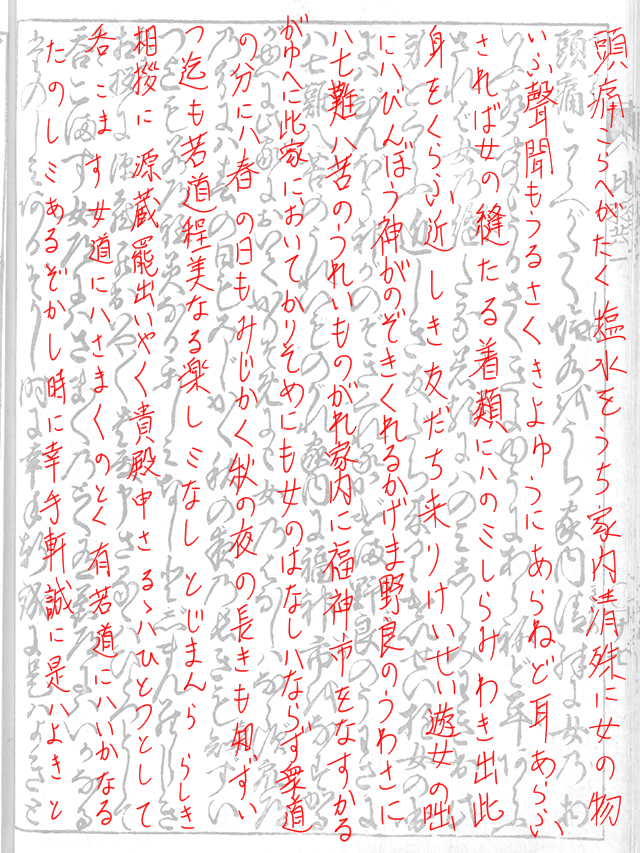 頭痛こらへがたく塩水をうち家内清殊に女の物
いふ聲聞もうるさくきよゆうにあらねど耳あらふ
されば女の縫たる着類にハのミしらみわき出此
身をくらふ近しき友だち来りけいせい遊女の咄
にハびんぼう神がのぞきくれるかげま野良のうわさに
ハ七難八苦のうれいものがれ家内に福神市をなすかる
がゆへに此家においてかりそめにも女のはなしハならず衆道
の分にハ春の日もみじかく秋の夜の長きも知ずい
つ迄も若道程美なる楽しミなしとじまんららしき
相拶に源蔵罷出いやく貴殿申さるゝハひとつとして
呑こます女道にハさまくのとく有若道にハいかなる
たのしミあるぞかし時に幸手軒誠に是ハよきと